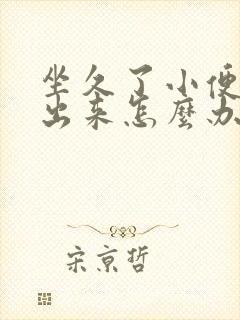 坐久了小便
出来怎麼办
宋京哲